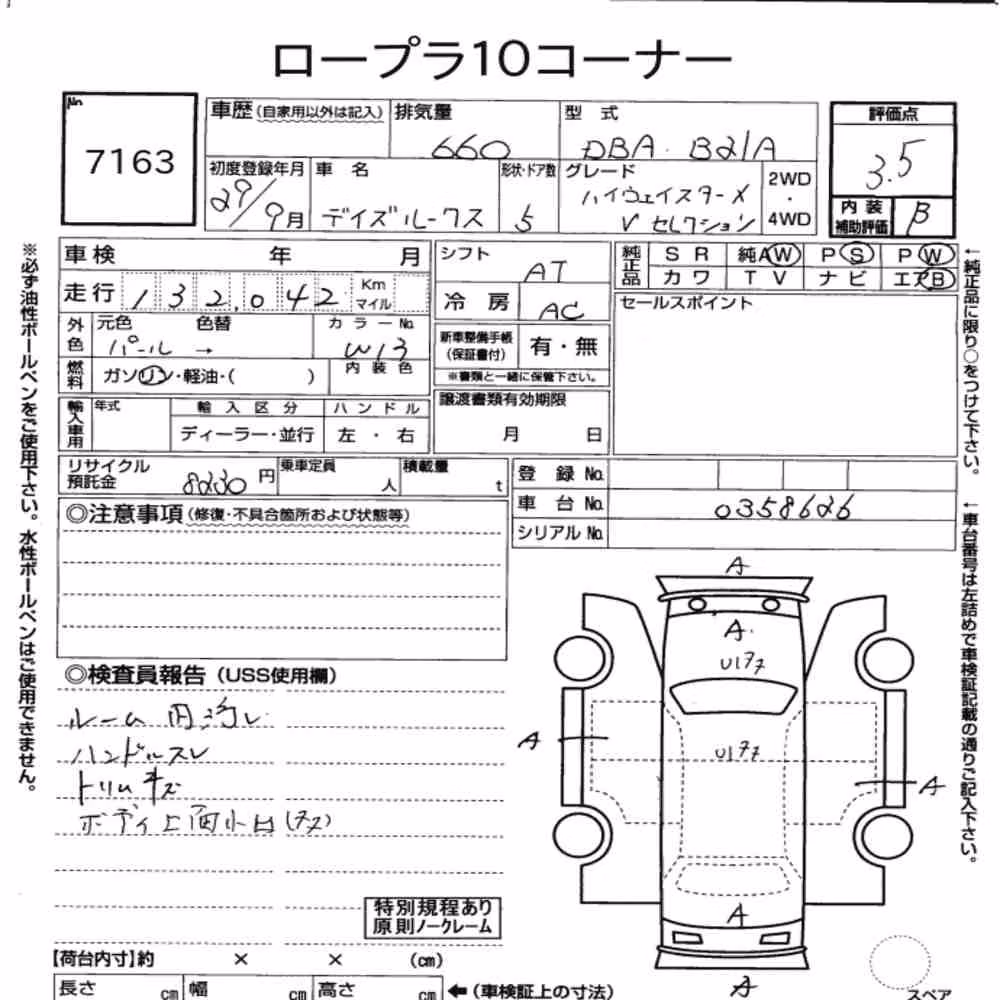 ロープラ10コーナー
No.
7163
車歴(自家用以外は記入)
排気量
660
型式
DBA. B21A
評価点
3.5
初度登録年月
29/9月
車名
デイズルークス
形状・ドア数
5
グレード
ハイウェイスターX
Vセレクション
2WD
・
4WD
内装
補助評価
B
車検 年 月
シフト
AT
純正品
SR 純AW PS PW
カワ TV ナビ エアB
走行 132,042 Km
マイル
冷房
AC
セールスポイント
外色
元色 色替
パール →
カラーNo.
W13
新車整備手帳
(保証書付)
有・無
※書類と一緒に保管下さい。
燃料
ガソリン・軽油・( )
内装色
輸入車用
年式
輸入区分
ディーラー・並行
ハンドル
左・右
譲渡書類有効期限
月 日
リサイクル
預託金
8230円
乗車定員
人
積載量
t
登録No.
車台No.
0358626
シリアルNo.
◎注意事項(修復・不具合箇所および状態等)
◎検査員報告(USS使用欄)
ルーム内汚レ
ハンドルスレ
トリムキズ
ボディ上面小凹(
特別規程あり
原則ノークレーム
A
A.
U1
A
U1
A
A
【荷台内寸】約 × × (cm)
長さ cm 幅 cm 高さ cm
←(車検証上の寸法)
スペア
※必ず油性ボールペンをご使用下さい。水性ボールペンはご使用できません。
←純正品に限り○をつけて下さい。
←車台番号は左詰めで車検証記載の通りご記入下さい。